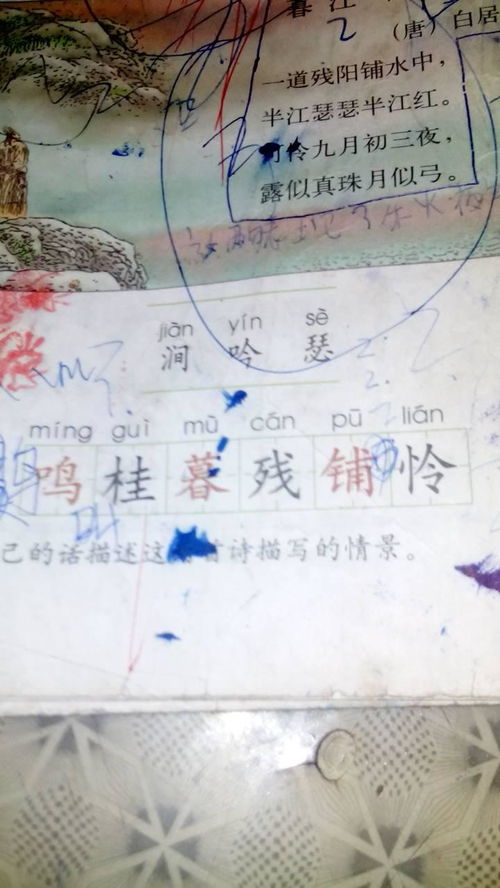 暮江
(唐)白居
一道残阳铺水中，
半江瑟瑟半江红。
可怜九月初三夜，
露似真珠月似弓。
jiàn yín sè
涧 吟 瑟
míng guì mù cán pū lián
鸣 桂 暮 残 铺 怜
己的话描述这 首诗描写的情景。